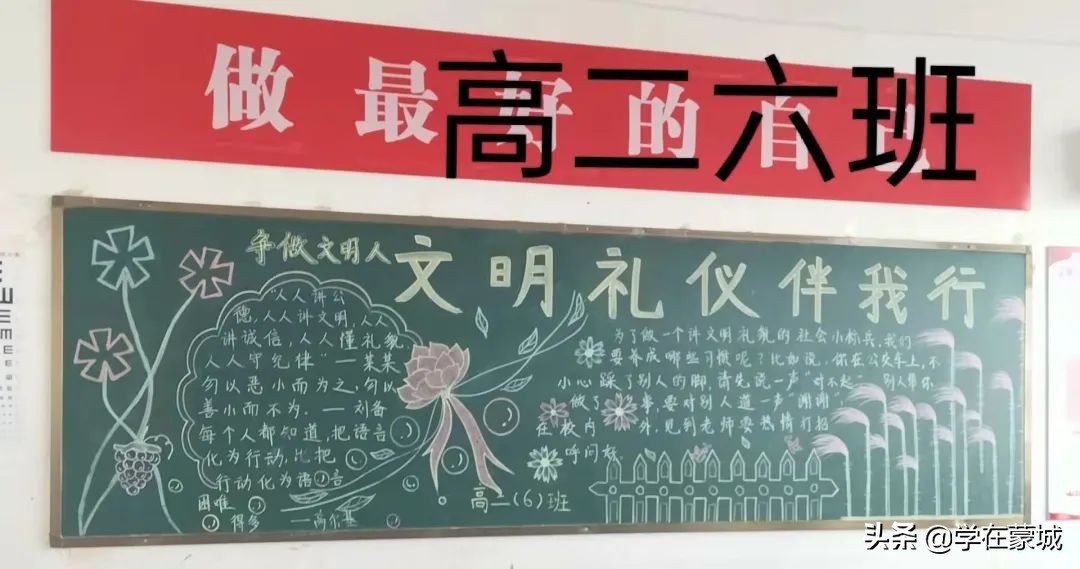 做最好的自己
高二六班
争做文明人
文明礼仪伴我行
"人人讲公
德,人人讲文明,人人
讲诚信,人人懂礼貌
人人守纪律"—某某
勿以恶小而为之 勿以
善小而不为. —刘备
每个人都知道,把语言
化为行动,比把
行动化为语言
困难
得多 —高尔基
为了做一个讲文明礼貌的社会小标兵,我们
要养成哪些习惯呢?比如说,你在公交车上,不
小心踩了别人的脚,请先说一声"对不起" 别人帮你
做了 事,要对别人道一声"谢谢"
在校内 外,见到老师要热情打招
呼问好.
高二(6)班
头条 @学在蒙城